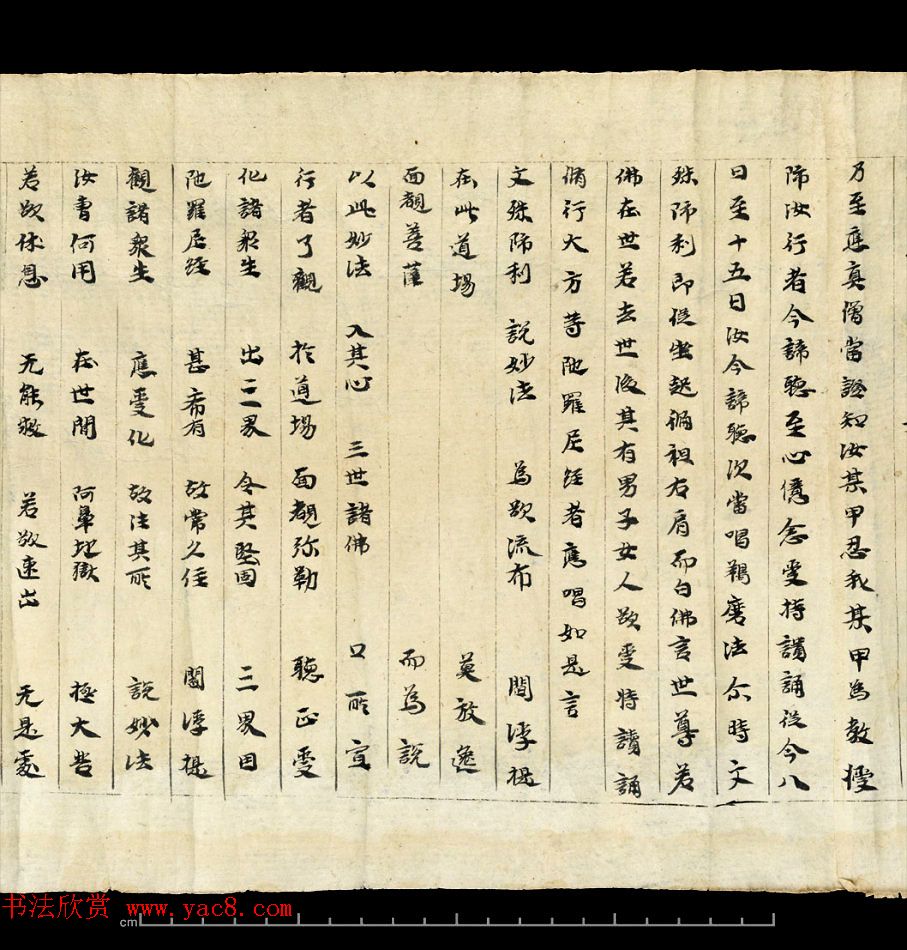 乃至應真僧當證知汝某甲忍我某甲為教授
師汝行者今諦聽至心憶念受持讀誦從今八
日至十五日汝今諦聽次當唱羯磨法尒時文
殊師利即從坐起偏袒右肩而白佛言世尊若
佛在世若去世後其有男子女人欲受持讀誦
脩行大方等陁羅尼經者應唱如是言
文殊師利 說妙法 為欲流布 閻浮提
在此道場 莫放逸
面覩菩薩 而為說
以此妙法 入其心 三世諸佛 口所宣
行者了觀 於道場 面覩弥勒 聽正受
化諸眾生 出三界 令其堅固 三界因
陁羅尼經 甚希有 故常久住 閻浮提
觀諸眾生 應受化 故法其所 說妙法
汝曹何用 在世間 阿鼻地獄 極大苦
若欲休息 无能救 若欲速出 无是處
书法欣赏 www.yac8.com
cm